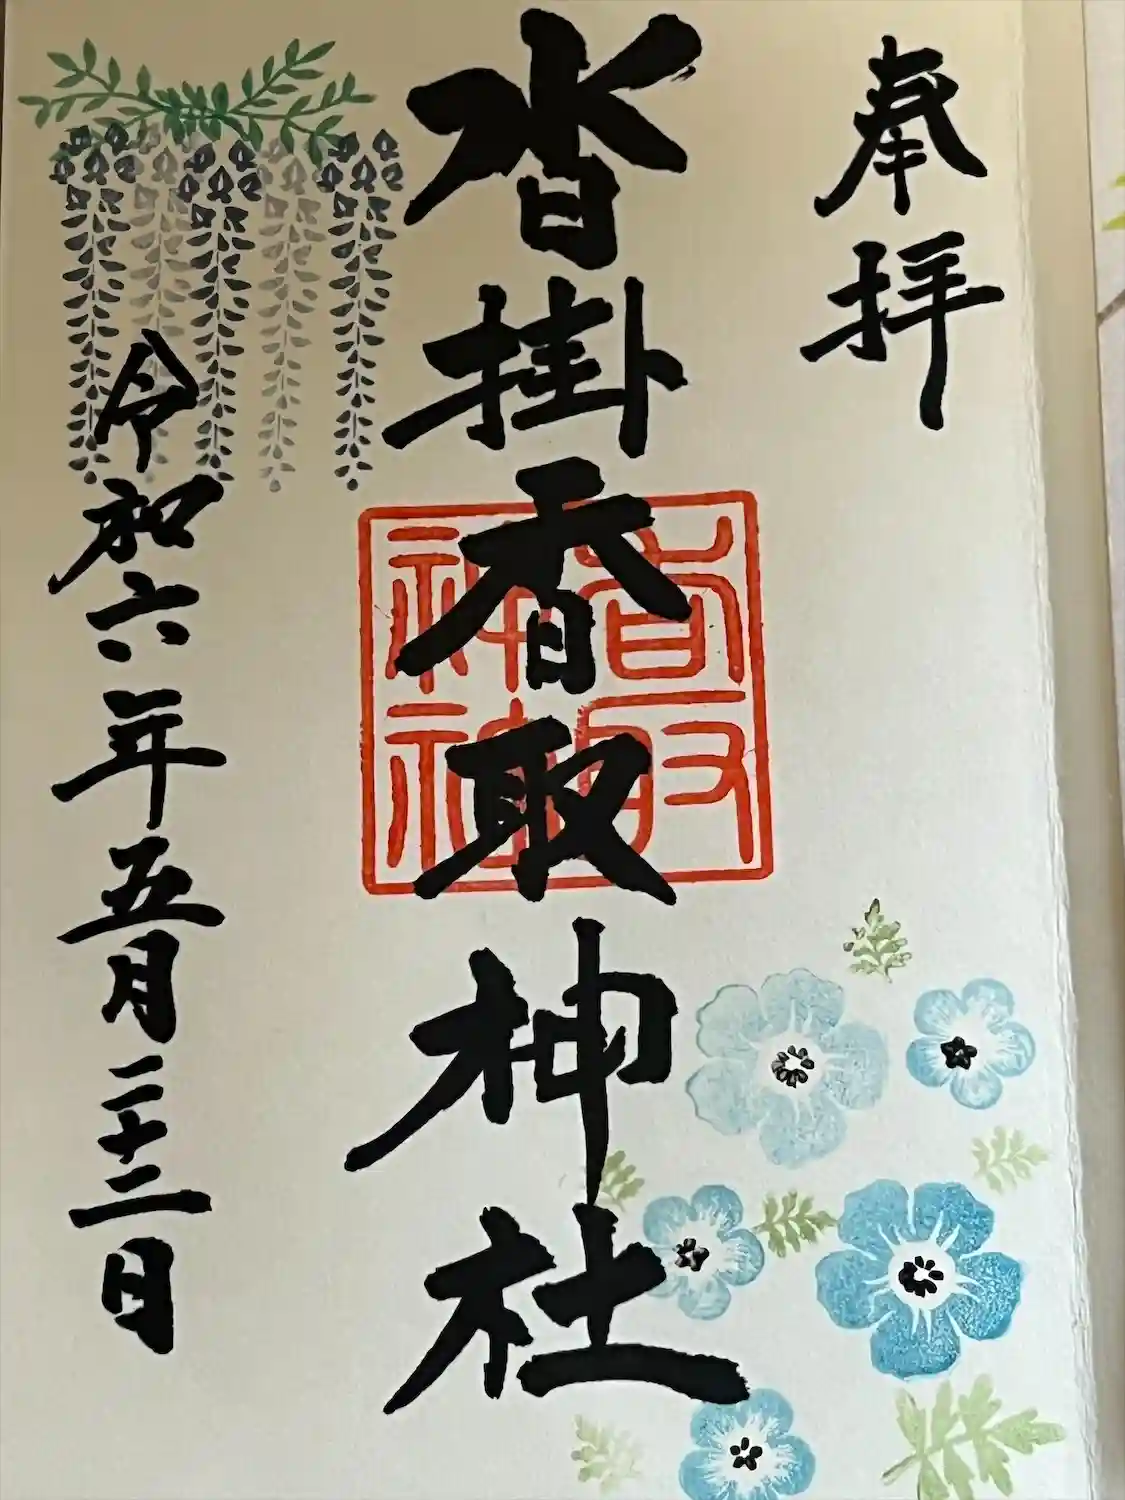 奉拝
沓掛香取神社
香取神社
令和六年五月二十二日